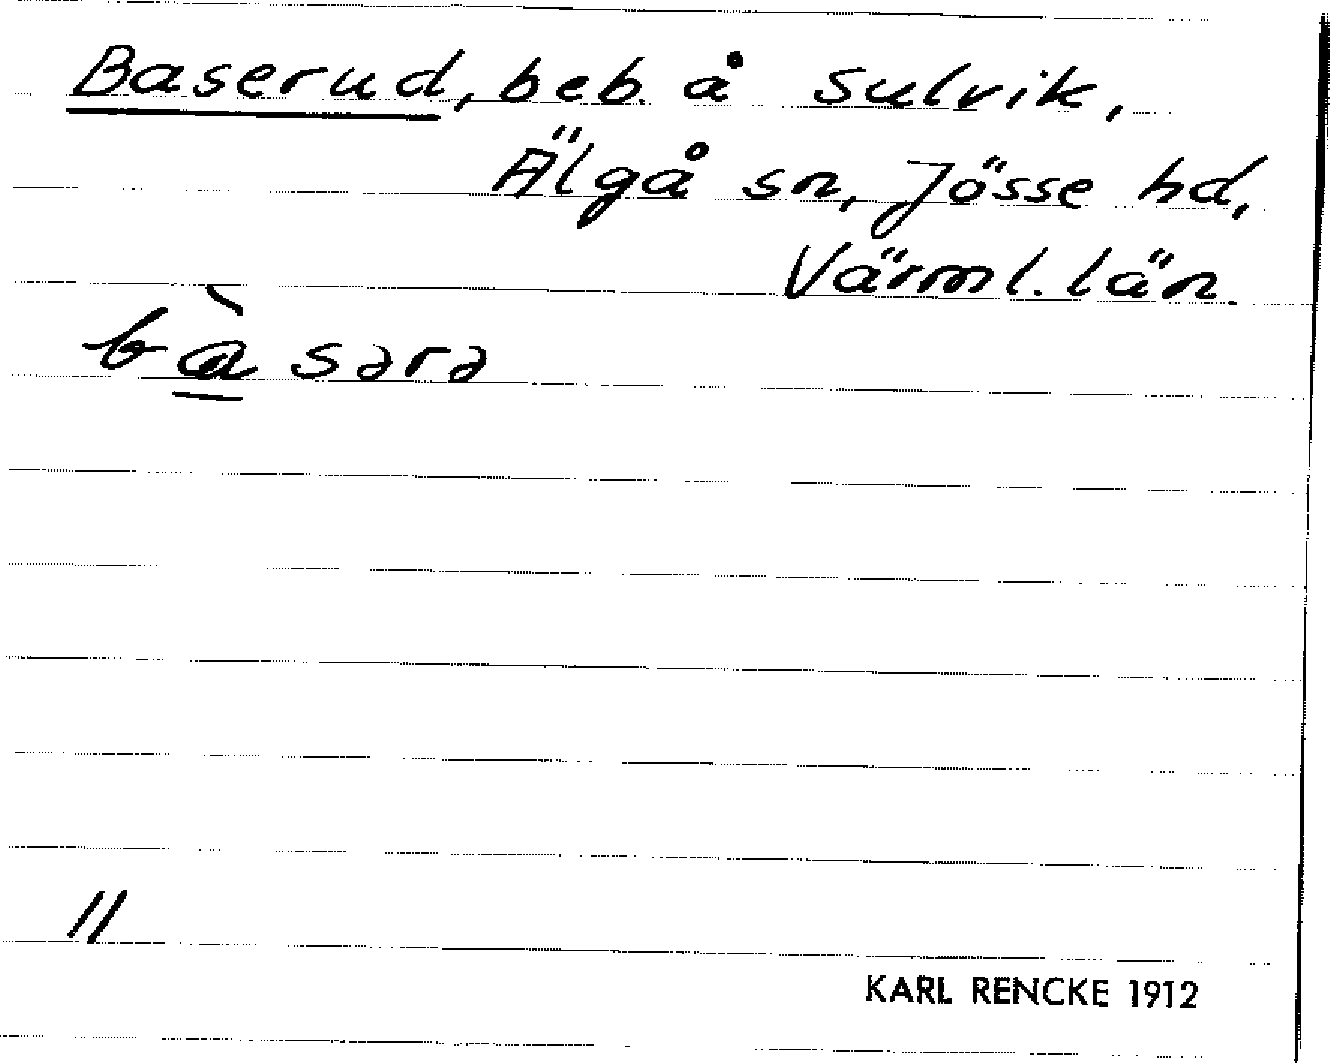 Baserud, beb. å Sulvik,
Älgå sn, Jösse hd,
Värml. län.
bàsərə
//
KARL RENCKE 1912